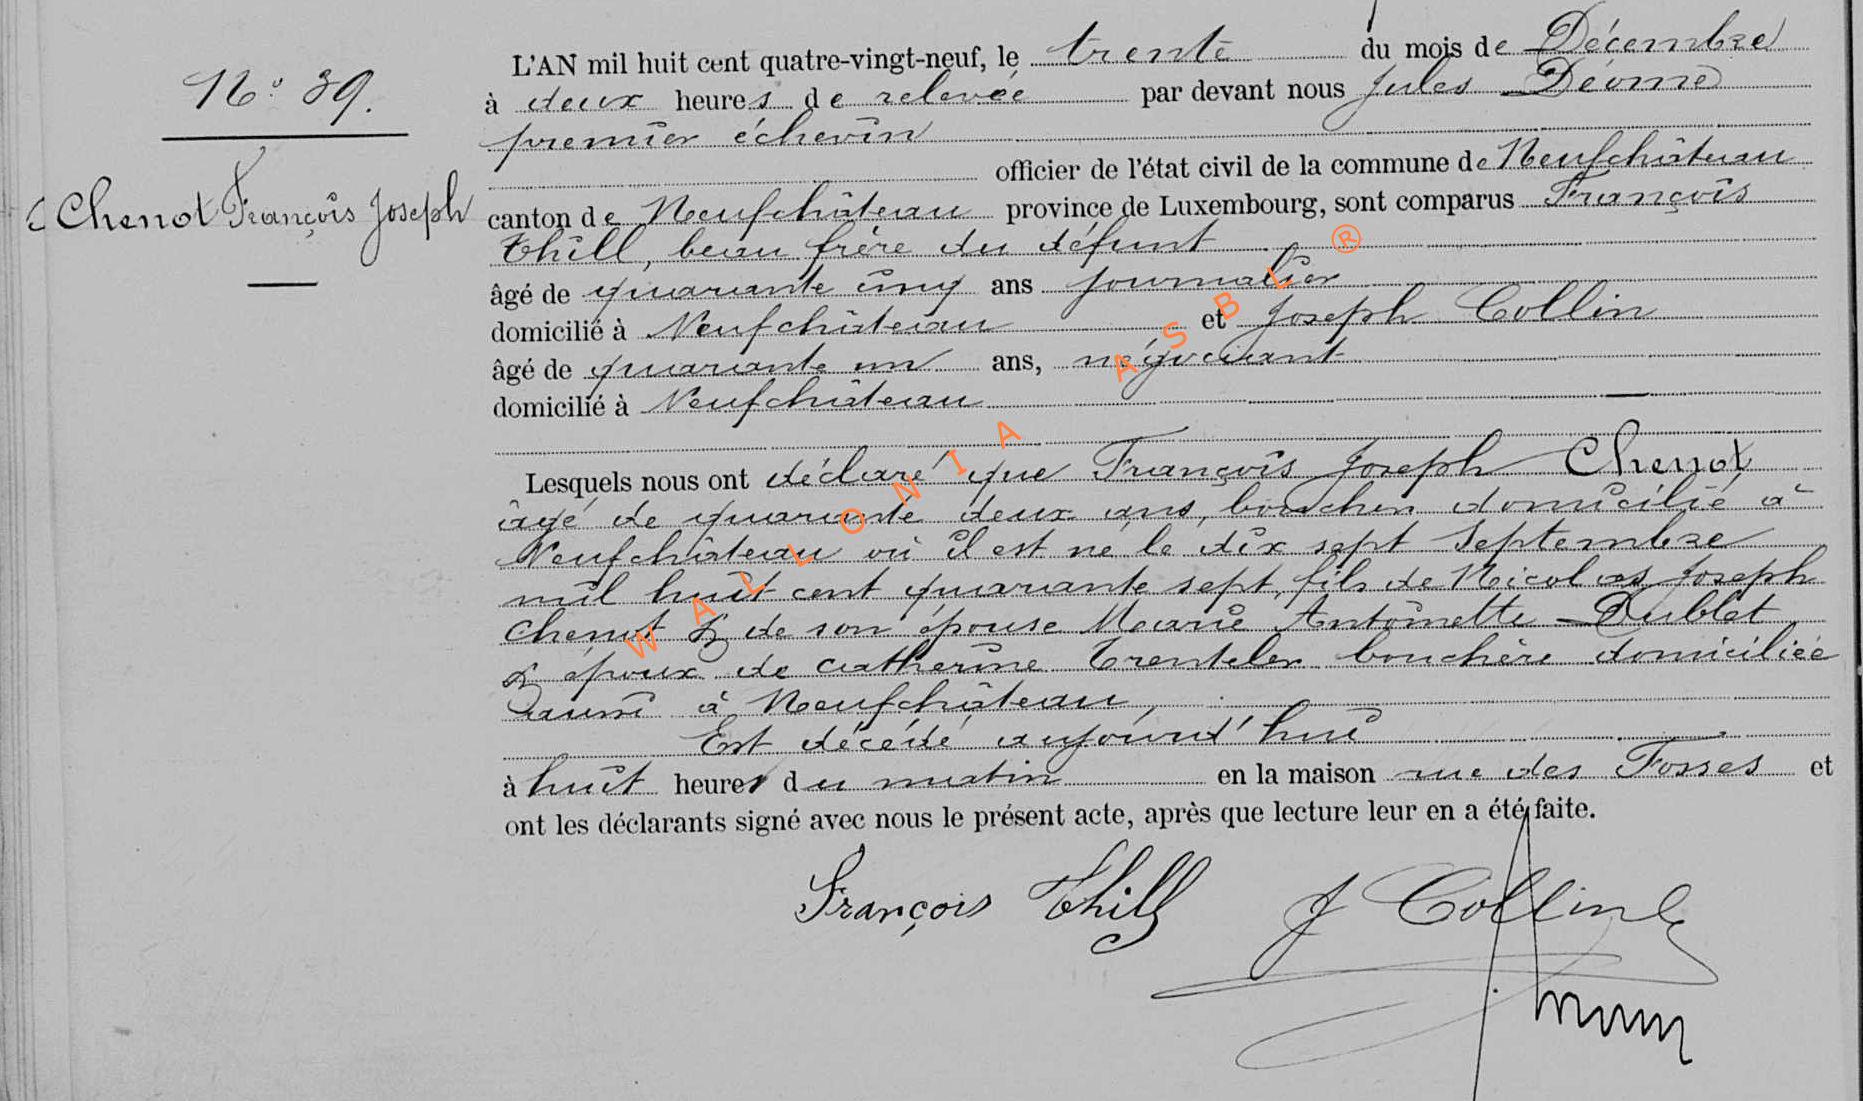 L'AN mil huit cent quatre-vingt-neuf, le trente du mois de Décembre
N° 39.
à deux heures de relevée par devant nous Jules Déome
premier échevin
officier de l'état civil de la commune de Neufchâteau
Chenot François Joseph
canton de Neufchâteau province de Luxembourg, sont comparus François
Thill, beau frère du défunt
âgé de quarante cinq ans journalier
domicilié à Neufchâteau et Joseph Collin
âgé de quarante un ans, négociant
domicilié à Neufchâteau
Lesquels nous ont déclaré que François Joseph Chenot
âgé de quarante deux ans, boucher domicilié à
Neufchâteau où il est né le dix sept Septembre
mil huit cent quarante sept, fils de Nicolas Joseph
Chenot & de son épouse Marie Antoinette Dublet
& époux de Catherine Trenteler bouchère domiciliée
aussi à Neufchâteau,
Est décédé aujourd'hui
à huit heures du matin en la maison rue des Fosses et
ont les déclarants signé avec nous le présent acte, après que lecture leur en a été faite.
François Thill J Collin
WALLONIA ASBL ®